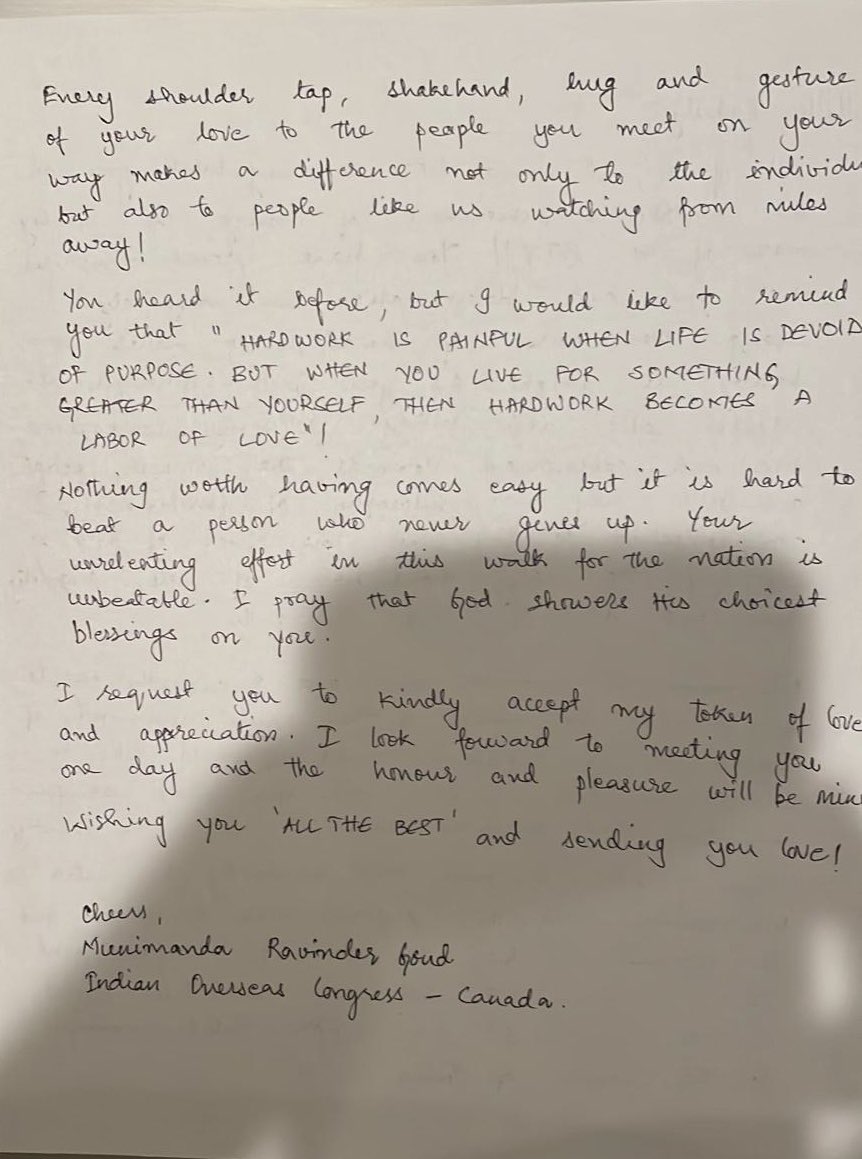 Every shoulder tap, shakehand, hug and gesture
of your love to the people you meet on your
way makes a difference not only to the individu
but also to people like us watching from miles
away!
You heard it before, but I would like to remind
you that "HARDWORK IS PAINFUL WHEN LIFE IS DEVOID
OF PURPOSE. BUT WHEN YOU LIVE FOR SOMETHING
GREATER THAN YOURSELF, THEN HARDWORK BECOMES A
LABOR OF LOVE"!
Nothing worth having comes easy but it is hard to
beat a person who never gives up. Your
unrelenting effort in this walk for the nation is
unbeatable. I pray that God showers His choicest
blessings on you.
I request you to kindly accept my token of love
and appreciation. I look forward to meeting you
one day and the honour and pleasure will be min
Wishing you 'ALL THE BEST' and sending you love!
Cheers,
Munimanda Ravinder Goud
Indian Overseas Congress - Canada.